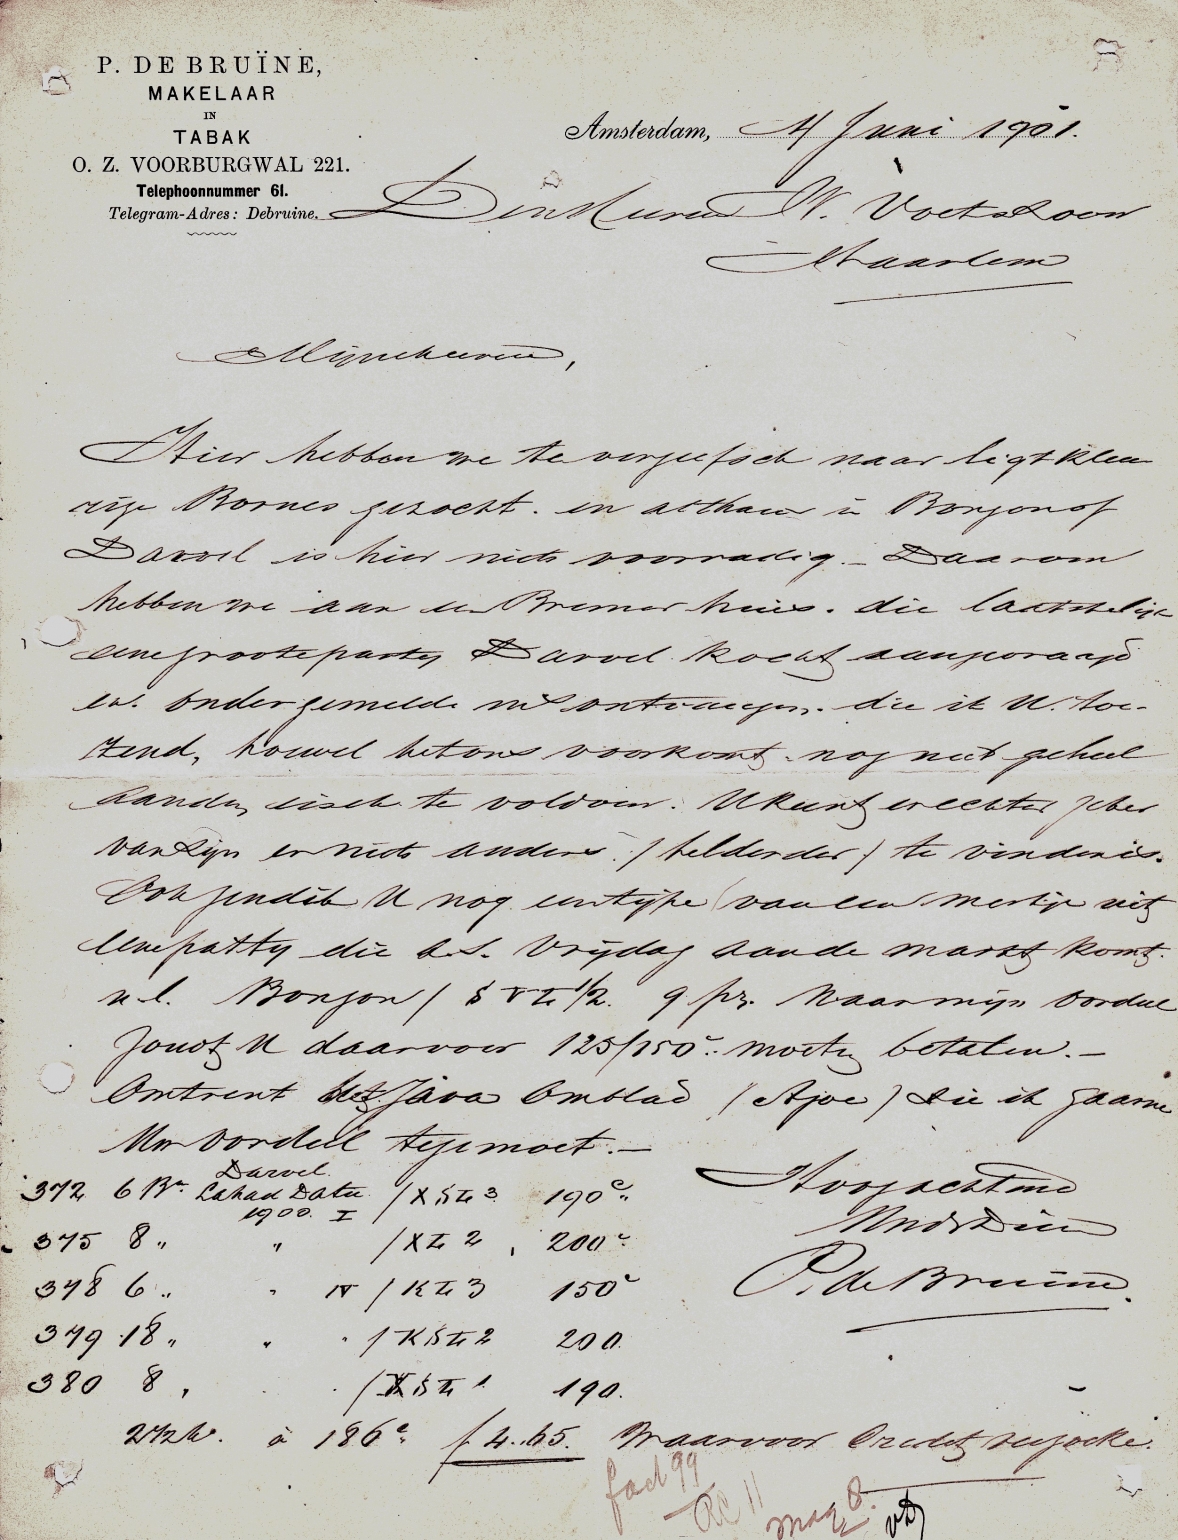 P. DE BRUÏNE,
MAKELAAR
IN
TABAK
O. Z. VOORBURGWAL 221.
Telephoonnummer 61.
Telegram-Adres: Debruine.
Amsterdam, 4 Juni 1901.
Den Heeren W. Voet & Zoon
Haarlem
Mijneheeren,
Hier hebben we te vergeefsch naar ligt kleu
rige Bornes gezocht. en althans in Bonjon of
Darvel is hier niets voorradig. Daarom
hebben we aan een Bremer huis. die laatstelijk
eene groote partij Darvel kocht aangevraagd
en ondergemelde ms ontvangen. die ik U. toe-
zend, hoewel het ons voorkomt. nog niet geheel
aan den eisch te voldoen. U kunt er echter zeker
van zijn er niets anders. (helderder) te vinden is.
Ook zend ik U nog een tijpe van een merkje uit
eene partij die a.s. Vrijdag aan de markt komt.
n.l. Bonjon / S V L 1/2. 9 pk. Naar mijn oordeel
zoudt U daarvoor 125/150 c. moeten betalen.—
Omtrent het Java Omblad (Ajoe) zie ik gaarne
Uw oordeel tegemoet.—
Darvel
372 6 Bn Lahad Datu / X S L 3 190 c.
1900. I
375 8 „ „ / X L 2 , 200 c
378 6 „ „ IV / K L 3 150 c
379 18 „ „ „ / K S L 2 200.
380 8 „ / S L 1 190.
Hoogachtend
UwdwDien
P. de Bruïne.
2½ k. à 186 c. f 4.65. Waarvoor Credet verzoeke.
fad 99
RC 11
mag 8.